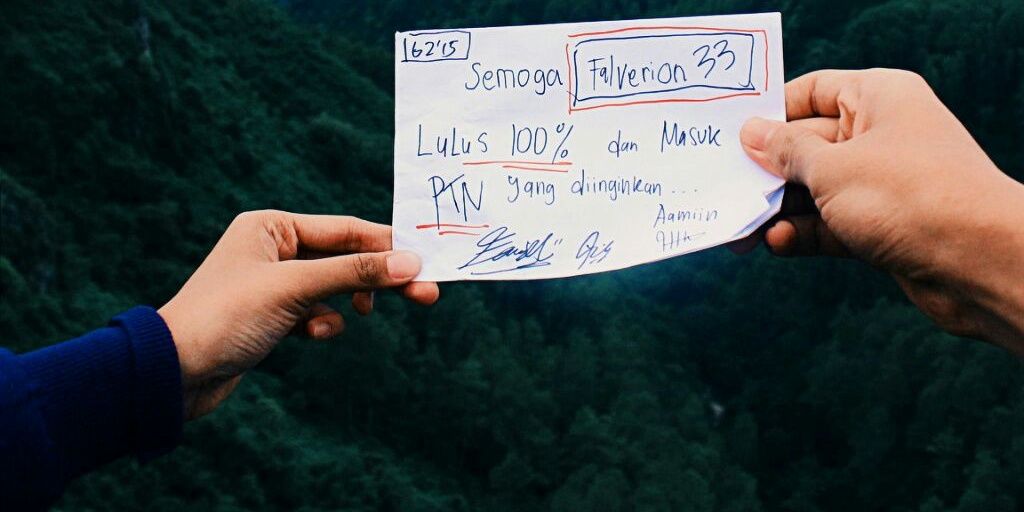 162'15
Semoga Falverion 33
Lulus 100% dan Masuk
PTN yang diinginkan ...
Aamiin